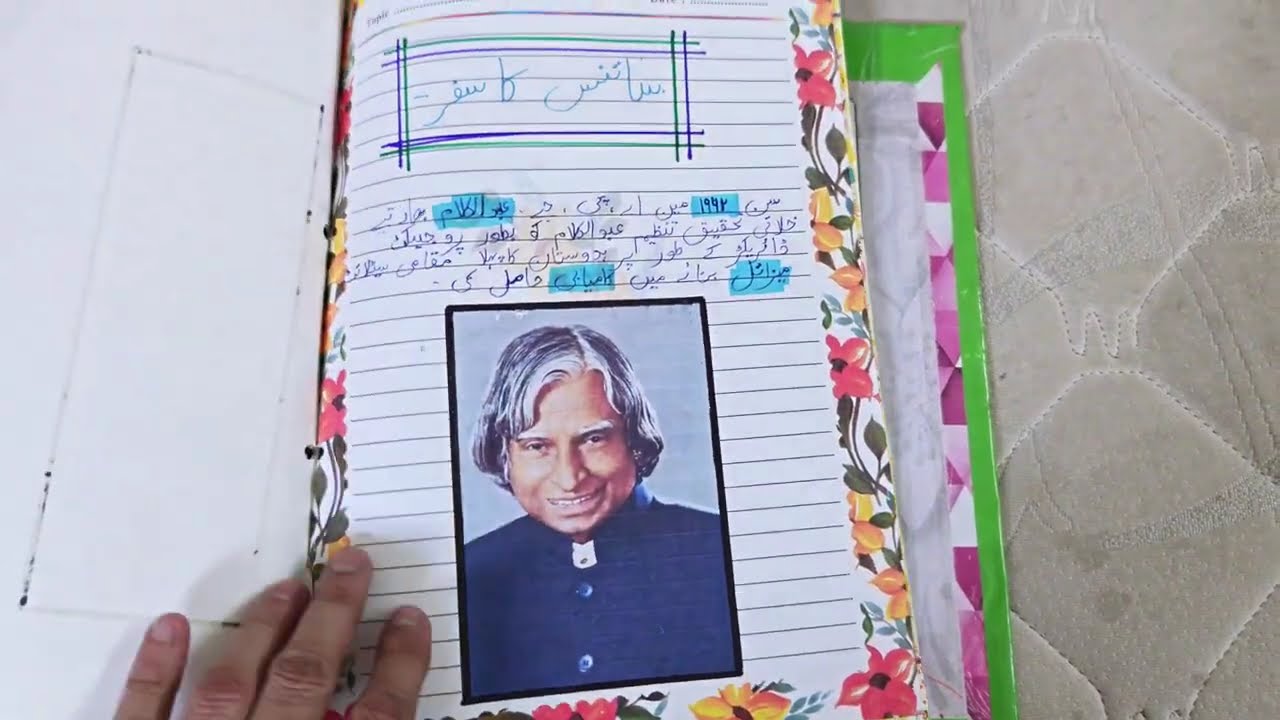 Topic
Date :
سائنس کا سفر -
سن ۱۹۹۲ میں اے، پی، جے. عبدالکلام بھارتے
خلائی تحقیق تنظیم عبدالکلام کو بطور پروجیکٹ
ڈائریکٹر کے طور پر ہندوستان کا پہلا مقامی
میزائل بنانے میں کامیابی حاصل کی -